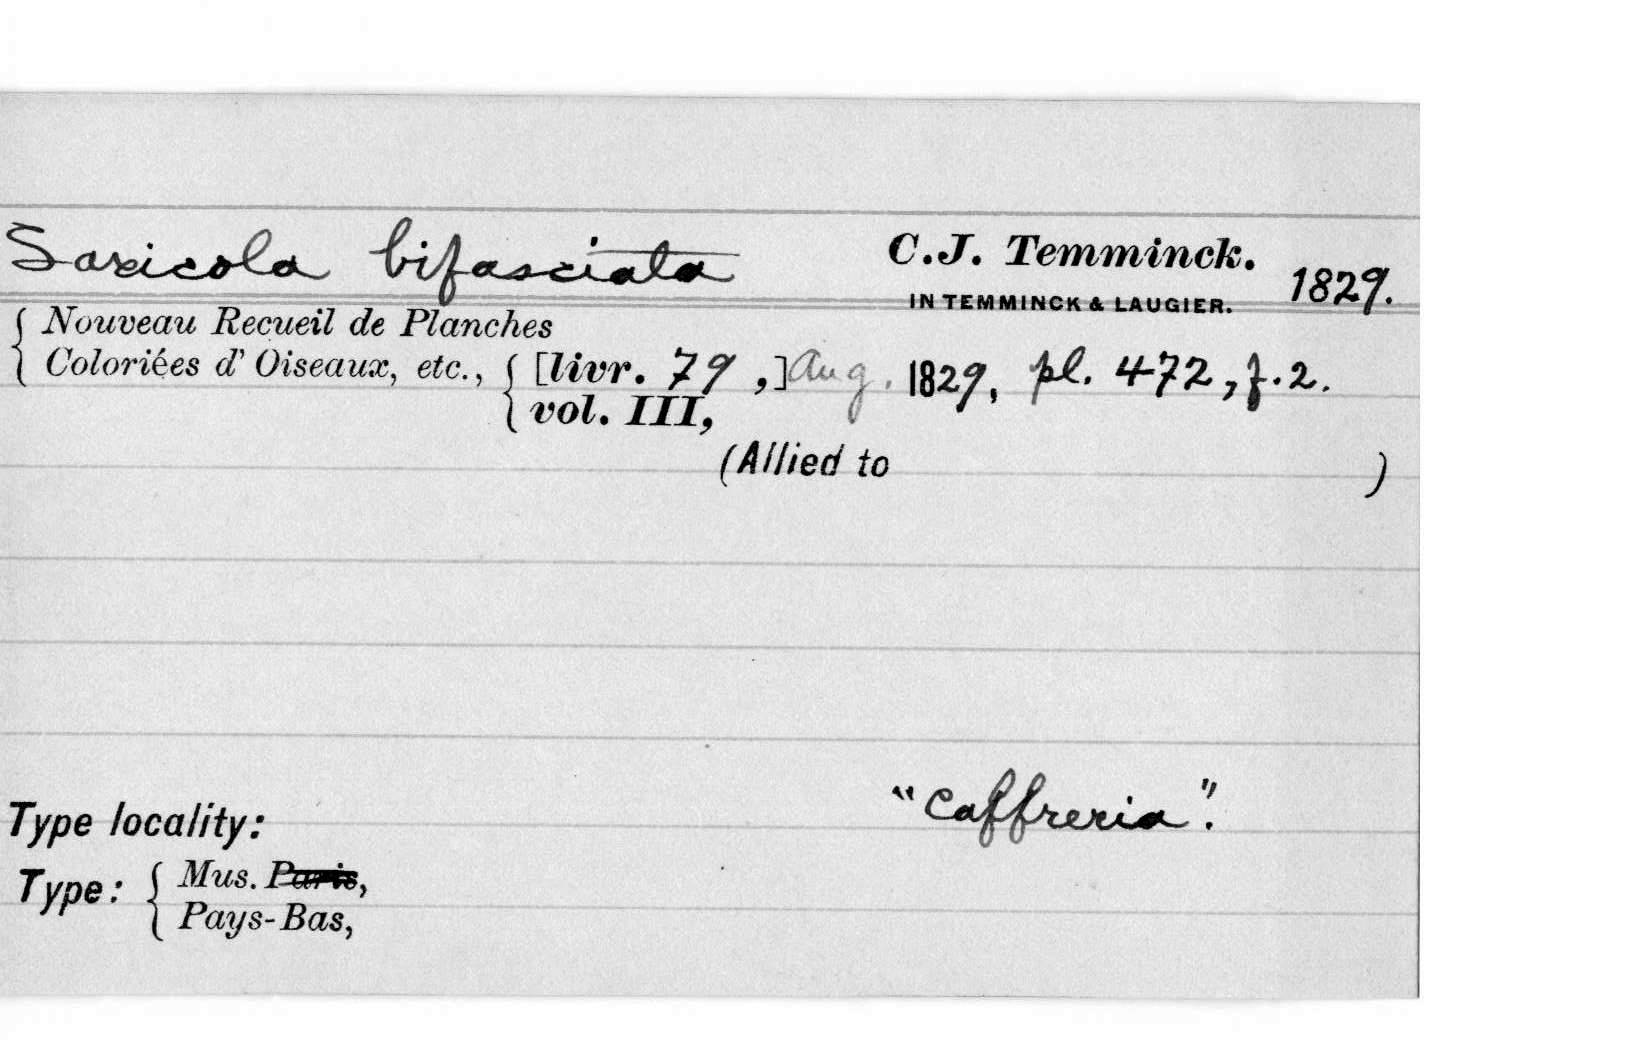 Saxicola bifasciata C.J. Temminck. 1829.
IN TEMMINCK & LAUGIER.
{ Nouveau Recueil de Planches
Coloriées d' Oiseaux, etc., { [livr. 79 ,] Aug. 1829, pl. 472, f. 2.
vol. III,
(Allied to )
Type locality: "Caffreria".
Type: { Mus. Paris,
Pays-Bas,